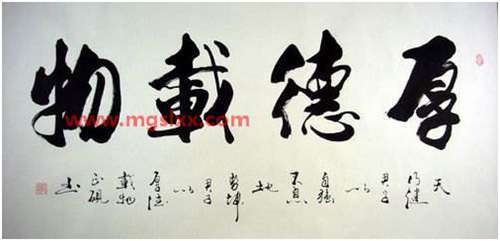 厚德載物
www.mgslxx.com
天
行健
君子
以
自强
不息
地
势坤
君子
以
厚德
載物
书